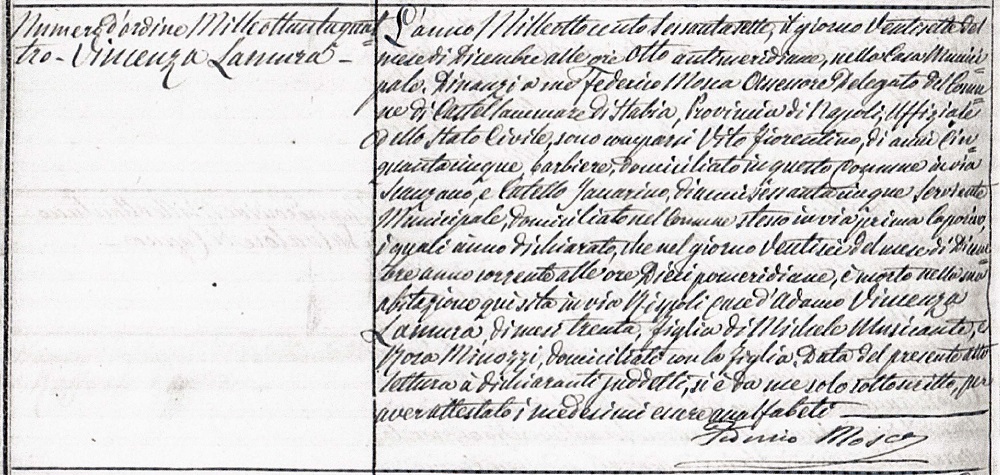 Numero d'ordine Milleottantaquat
tro - Vincenza Lamura -
L'anno Milleottocento Sessantasette, il giorno Ventisette del
mese di Dicembre alle ore Otto antimeridiane, nella Casa Munici
pale. Dinanzi a me Federico Mosca Assessore Delegato del Comu
ne di Castellammare di Stabia, Provincia di Napoli, Uffiziale
dello Stato Civile, sono comparsi Vito Fiorentino, di anni Cin
quantacinque, barbiere, domiciliato in questo Comune in via
e Catello di anni sessantacinque, Serviente
Municipale, domiciliato nel Comune stesso in via prima
i quali ànno dichiarato, che nel giorno Venticinque del mese di Dicem
bre anno corrente alle ore Dieci pomeridiane, è morta nella sua
abitazione qui sita in via Rispoli case d'Adamo Vincenza
Lamura di mesi trenta, figlia di Michele Musicante, e
Rosa Minozzi, domiciliati con la figlia. Data del presente atto
lettura à dichiaranti suddetti, si è da me solo sottoscritto, per
aver attestato i medesimi essere analfabeti
Federico Mosca